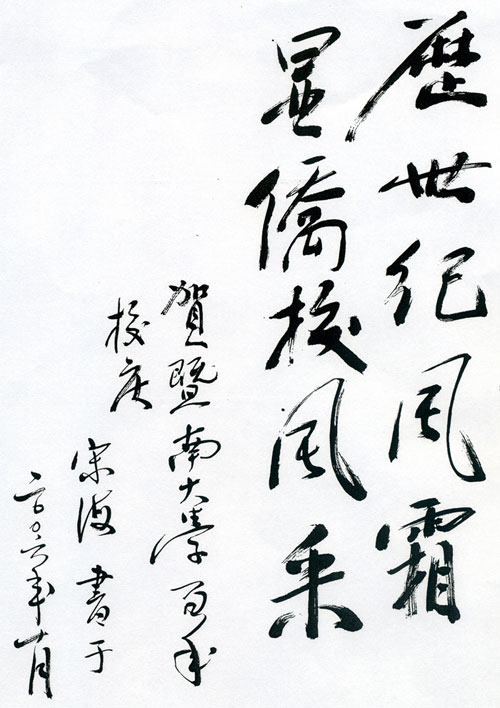 歷世紀風霜
显僑校風采
賀暨南大學百年
校庆
宋海書于
二〇〇六年十月